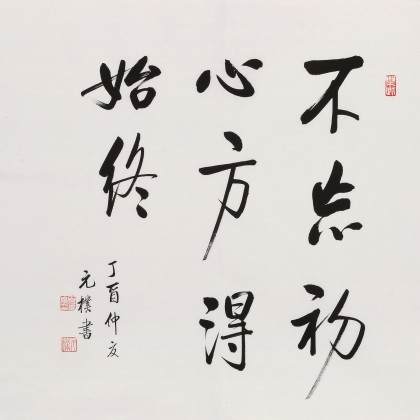 不忘初
心方得
始终
丁酉仲夏
元樸書